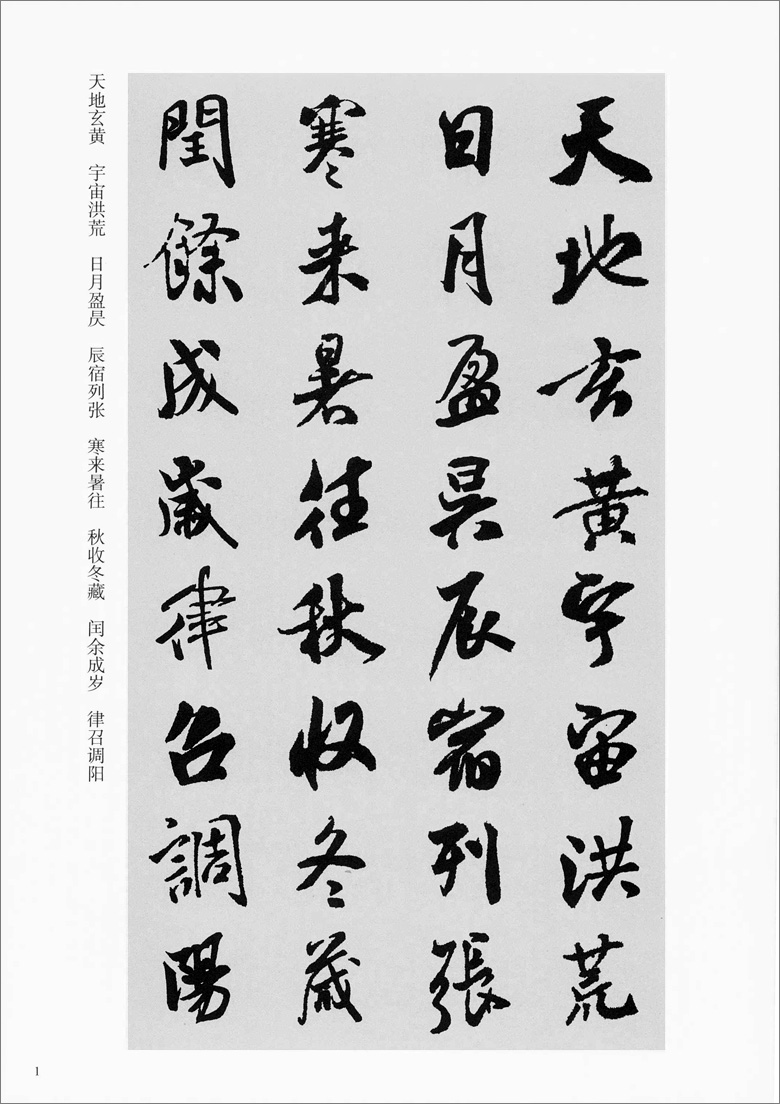 天地玄黄宇宙洪荒
日月盈昃辰宿列張
寒来暑往秋收冬蔵
閏餘成歲律召調陽
天地玄黄 宇宙洪荒 日月盈昃 辰宿列张 寒来暑往 秋收冬藏 闰余成岁 律召调阳
1